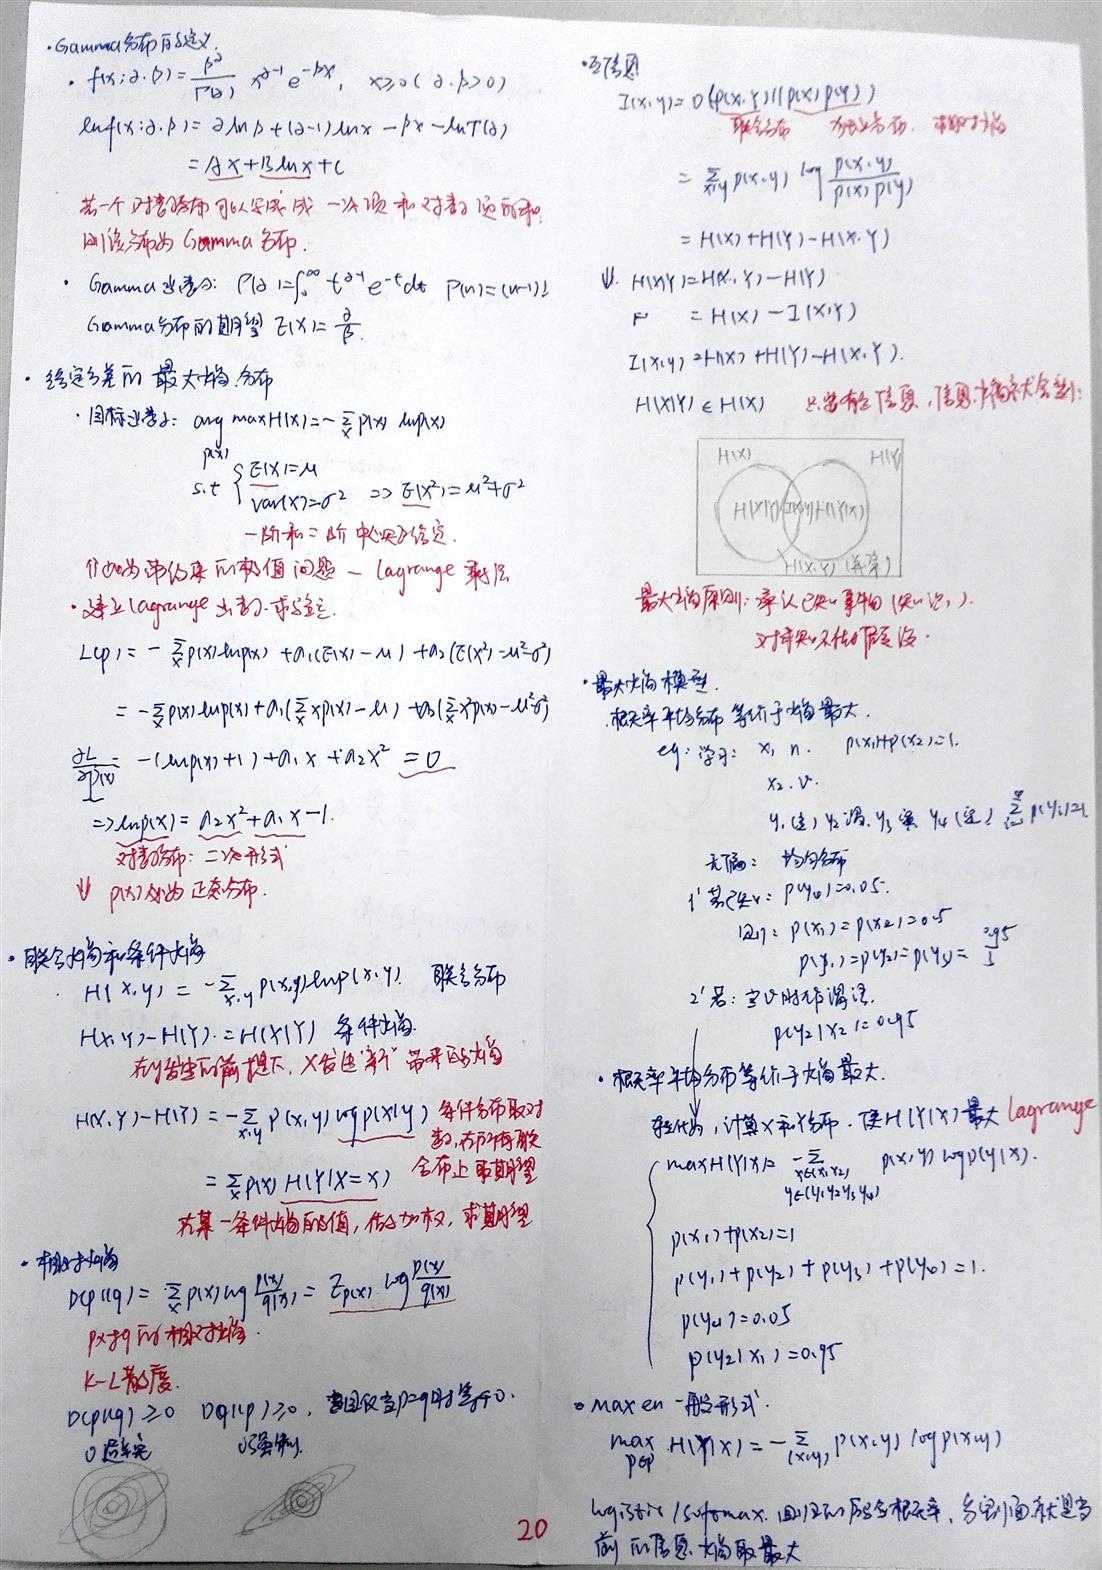 ·Gamma分布的定义.
· f(x;α.β)= β^α/Γ(α) x^(α-1) e^(-βx), x≥0 (α.β>0)
lnf(x;α.β) = αlnβ+(α-1)lnx-βx-lnΓ(α)
= Ax+Blnx+C
若一个对数分布可以写成 一次项和对数项的和,
则该分布为Gamma分布.
· Gamma函数: Γ(α)=∫₀^∞ t^(α-1) e^(-t)dt Γ(n)=(n-1)!
Gamma分布的期望 E(X)= α/β.
· 给定方差的最大熵分布
· 目标函数: arg max H(X)=-Σₓ p(x) lnp(x)
p(x)
s.t { E(X)=μ
Var(X)=σ² => E(X²)=μ²+σ²
一阶和二阶 给定.
带约束的极值问题 - Lagrange 乘子法
·建立Lagrange函数.求
L(p)= -Σₓ p(x)lnp(x) +a₁(E(x)-μ) +a₂(E(x²)-μ²-σ²)
= -Σₓ p(x)lnp(x)+a₁(Σₓ xp(x)-μ) +a₂(Σₓ x²p(x)-μ²-σ²)
∂L/∂p(x) = -(lnp(x)+1)+a₁x+a₂x² =0
=> lnp(x) = a₂x²+a₁x-1.
对数分布: 二次形式
⇓ p(x) 为正态分布.
· 联合熵和条件熵
· H(X,Y) = -Σx,y p(x,y)lnp(x,y). 联合分布
H(X,Y)-H(Y) = H(X|Y) 条件熵.
在Y发生的前提下, X发生"新"带来的熵
H(X,Y)-H(Y) = -Σx,y p(x,y) logp(x|y) 条件分布取对
数,在所有联
= Σₓ p(x) H(Y|X=x) 合分布上取期望
在某一条件熵的值, 加权, 求期望
· 相对熵
D(p||q) = Σₓ p(x)log p(x)/q(x) = E_p(x) log p(x)/q(x)
p对q的相对熵.
K-L散度.
D(p||q)≥0 D(q||p)≥0, 当且仅当p=q时等于0.
20
·互信息
I(X,Y)= D(p(X,Y)||p(X)p(Y))
联合分布 分布. 相对熵
= Σx,y p(x,y) log p(x,y)/p(x)p(y)
= H(X)+H(Y)-H(X,Y)
⇓ H(X|Y)=H(X,Y)-H(Y)
= H(X)-I(X,Y)
I(X,Y)=H(X)+H(Y)-H(X,Y).
H(X|Y)≤H(X) 只要有 信息, 信息熵
H(X) H(Y)
H(X|Y) I(X,Y) H(Y|X)
H(X,Y)
最大熵原则: 承认已知事物(知识).
对未知不作假设.
· 最大熵模型.
.概率平均分布 等价于熵最大.
eg: 学习: x₁ n. p(x₁)+p(x₂)=1.
x₂.v.
y₁(主) y₂谓. y₃宾 y₄(定) Σ p(yᵢ)=1
无偏: 均匀分布
1' 若已知: p(y₄)=0.05.
则: p(x₁)=p(x₂)=0.5
p(y₁)=p(y₂)=p(y₃)= 0.95/3
2' 若: 当v时作谓语.
p(y₂|x₂)=0.95
· 概率平均分布等价于熵最大.
转化为, 计算X和Y分布. 使H(Y|X)最大 Lagrange
maxH(Y|X)= -Σ p(x,y) logp(y|x).
x∈(x₁,x₂)
y∈(y₁y₂y₃y₄)
p(x₁)+p(x₂)=1
p(y₁)+p(y₂)+p(y₃)+p(y₄)=1.
p(y₄)=0.05
p(y₂|x₁)=0.95
· max en 一般形式.
max H(Y|X)= -Σ(x,y) p(x,y) logp(x,y)
p∈P
Logistic/Softmax.回归的 概率, 就是当
前的信息熵取最大